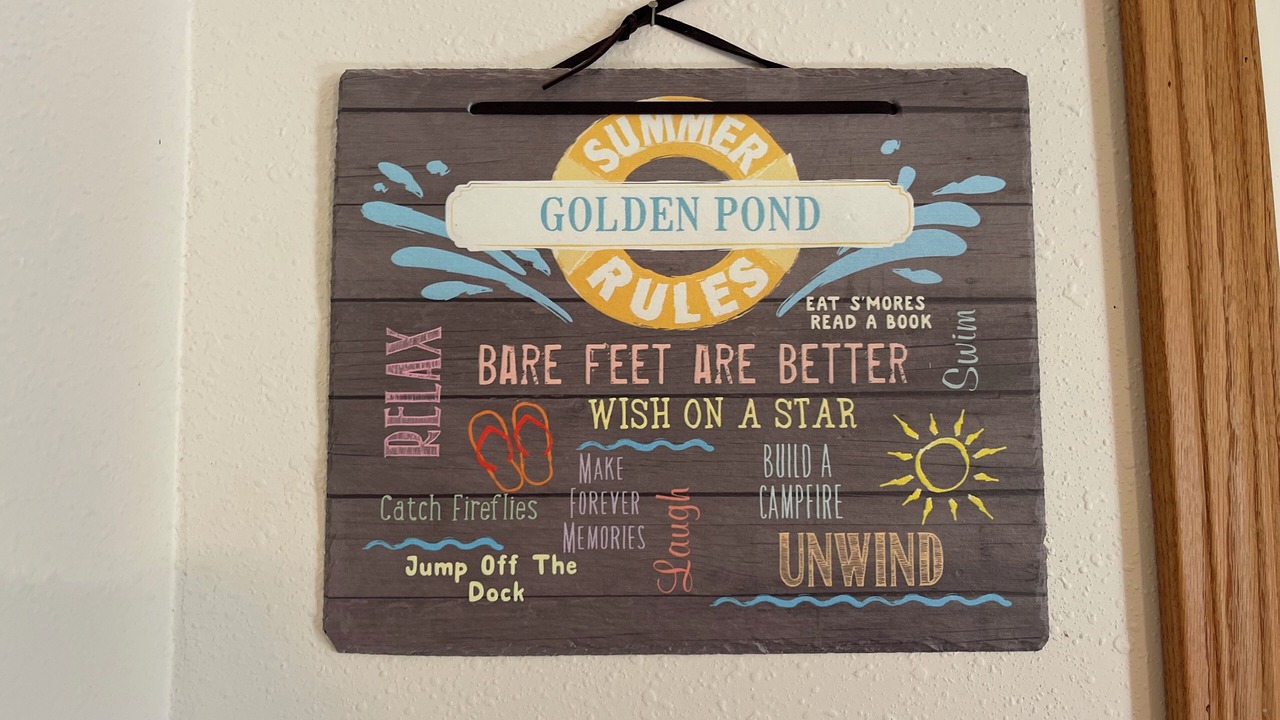 SUMMER
GOLDEN POND
RULES
EAT S'MORES
READ A BOOK
Swim
RELAX
BARE FEET ARE BETTER
WISH ON A STAR
MAKE
FOREVER
MEMORIES
BUILD A
CAMPFIRE
Catch Fireflies
Laugh
UNWIND
Jump Off The
Dock